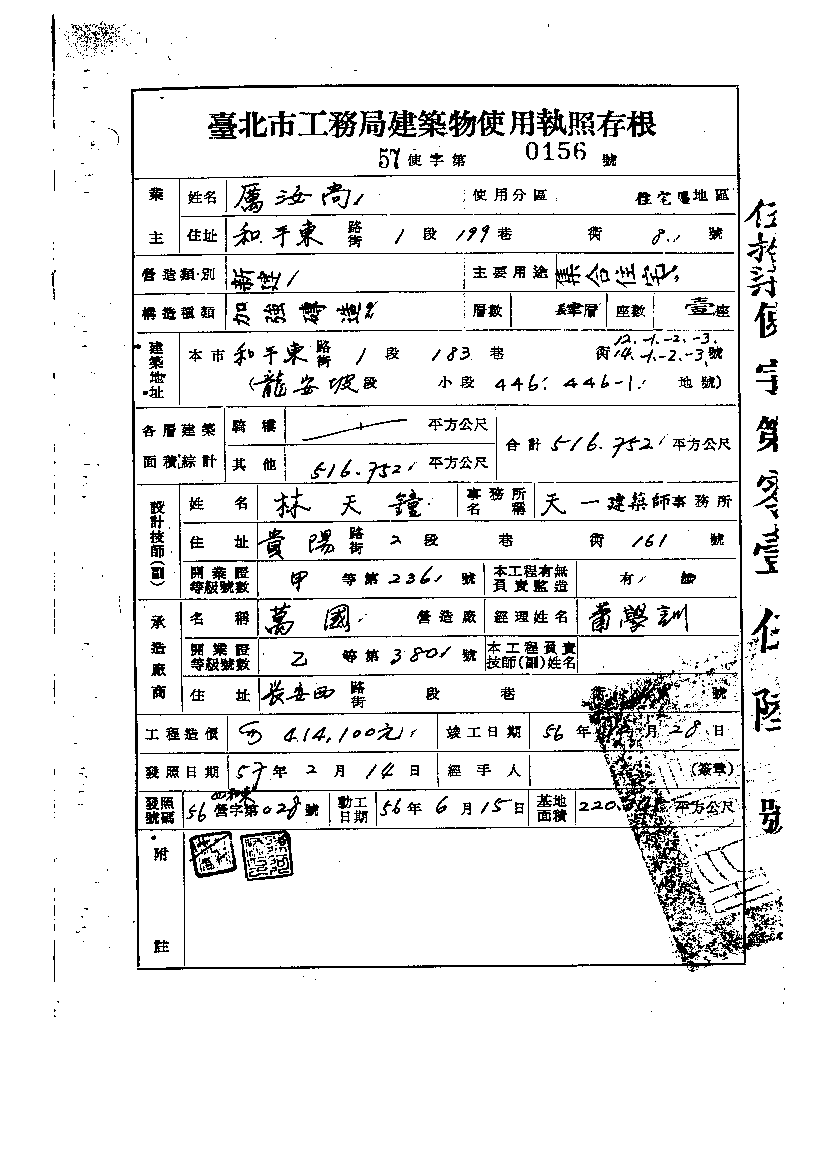 臺北市工務局建築物使用執照存根
57使字第 0156 號
業主 姓名 厲汝尚 使用分區 住宅區地區
住址 和平東路街 1段 199巷 街 8 號
營造類別 新建 主要用途 集合住宅
構造種類 加強磚造 層數 層 座數 壹座
建築地址 本市 和平東路街 1段 183巷 街 12.-1.-2.-3. 14.-1.-2.-3. 號
(龍安坡段 小段 446. 446-1. 地號)
各層建築面積綜計 騎樓 平方公尺 合計 516.752 平方公尺
其他 516.752 平方公尺
設計技師(副) 姓名 林天鐘 事務所名稱 天一建築師事務所
住址 貴陽路街 2段 巷 街 161 號
開業證等級號數 甲等第 236 號 本工程有無負責監造 有 無
承造廠商 名稱 萬國 營造廠 經理姓名 蕭學訓
開業證等級號數 乙等第 3801 號 本工程負責技師(副)姓名
住址 長安西路街 段 巷 街 號
工程造價 414,100元 竣工日期 56年 月28日
發照日期 57年2月14日 經手人 (簽章)
發照號碼 56營字第028號 動工日期 56年6月15日 基地面積 220. 平方公尺
附註
伍拾柒使字第零壹伍陸號